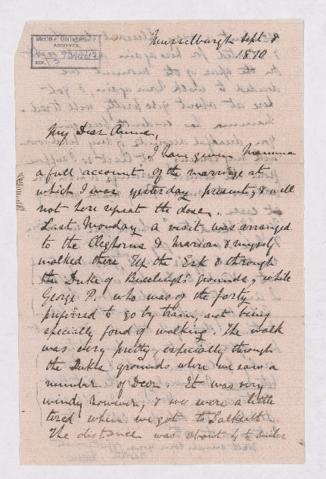 Musselburgh Sept 8
1870
McGILL UNIVERSITY
ARCHIVES
My Dear Anna,
I have given Mamma
a full account of the marriage at
which I was yesterday present, & will
not here repeat the dose.
Last Monday a visit was arranged
to the Cleghorns & Marion & myself
walked there up the Esk & through
the Duke of Buccleugh's grounds, while
George P. who was of the party
preferred to go by train, not being
specially fond of walking. The walk
was very pretty, especially through
the Dukes grounds where we saw a
number of Deer. It was very
windy however, & we were a little
tired when we got to
The distance was about miles